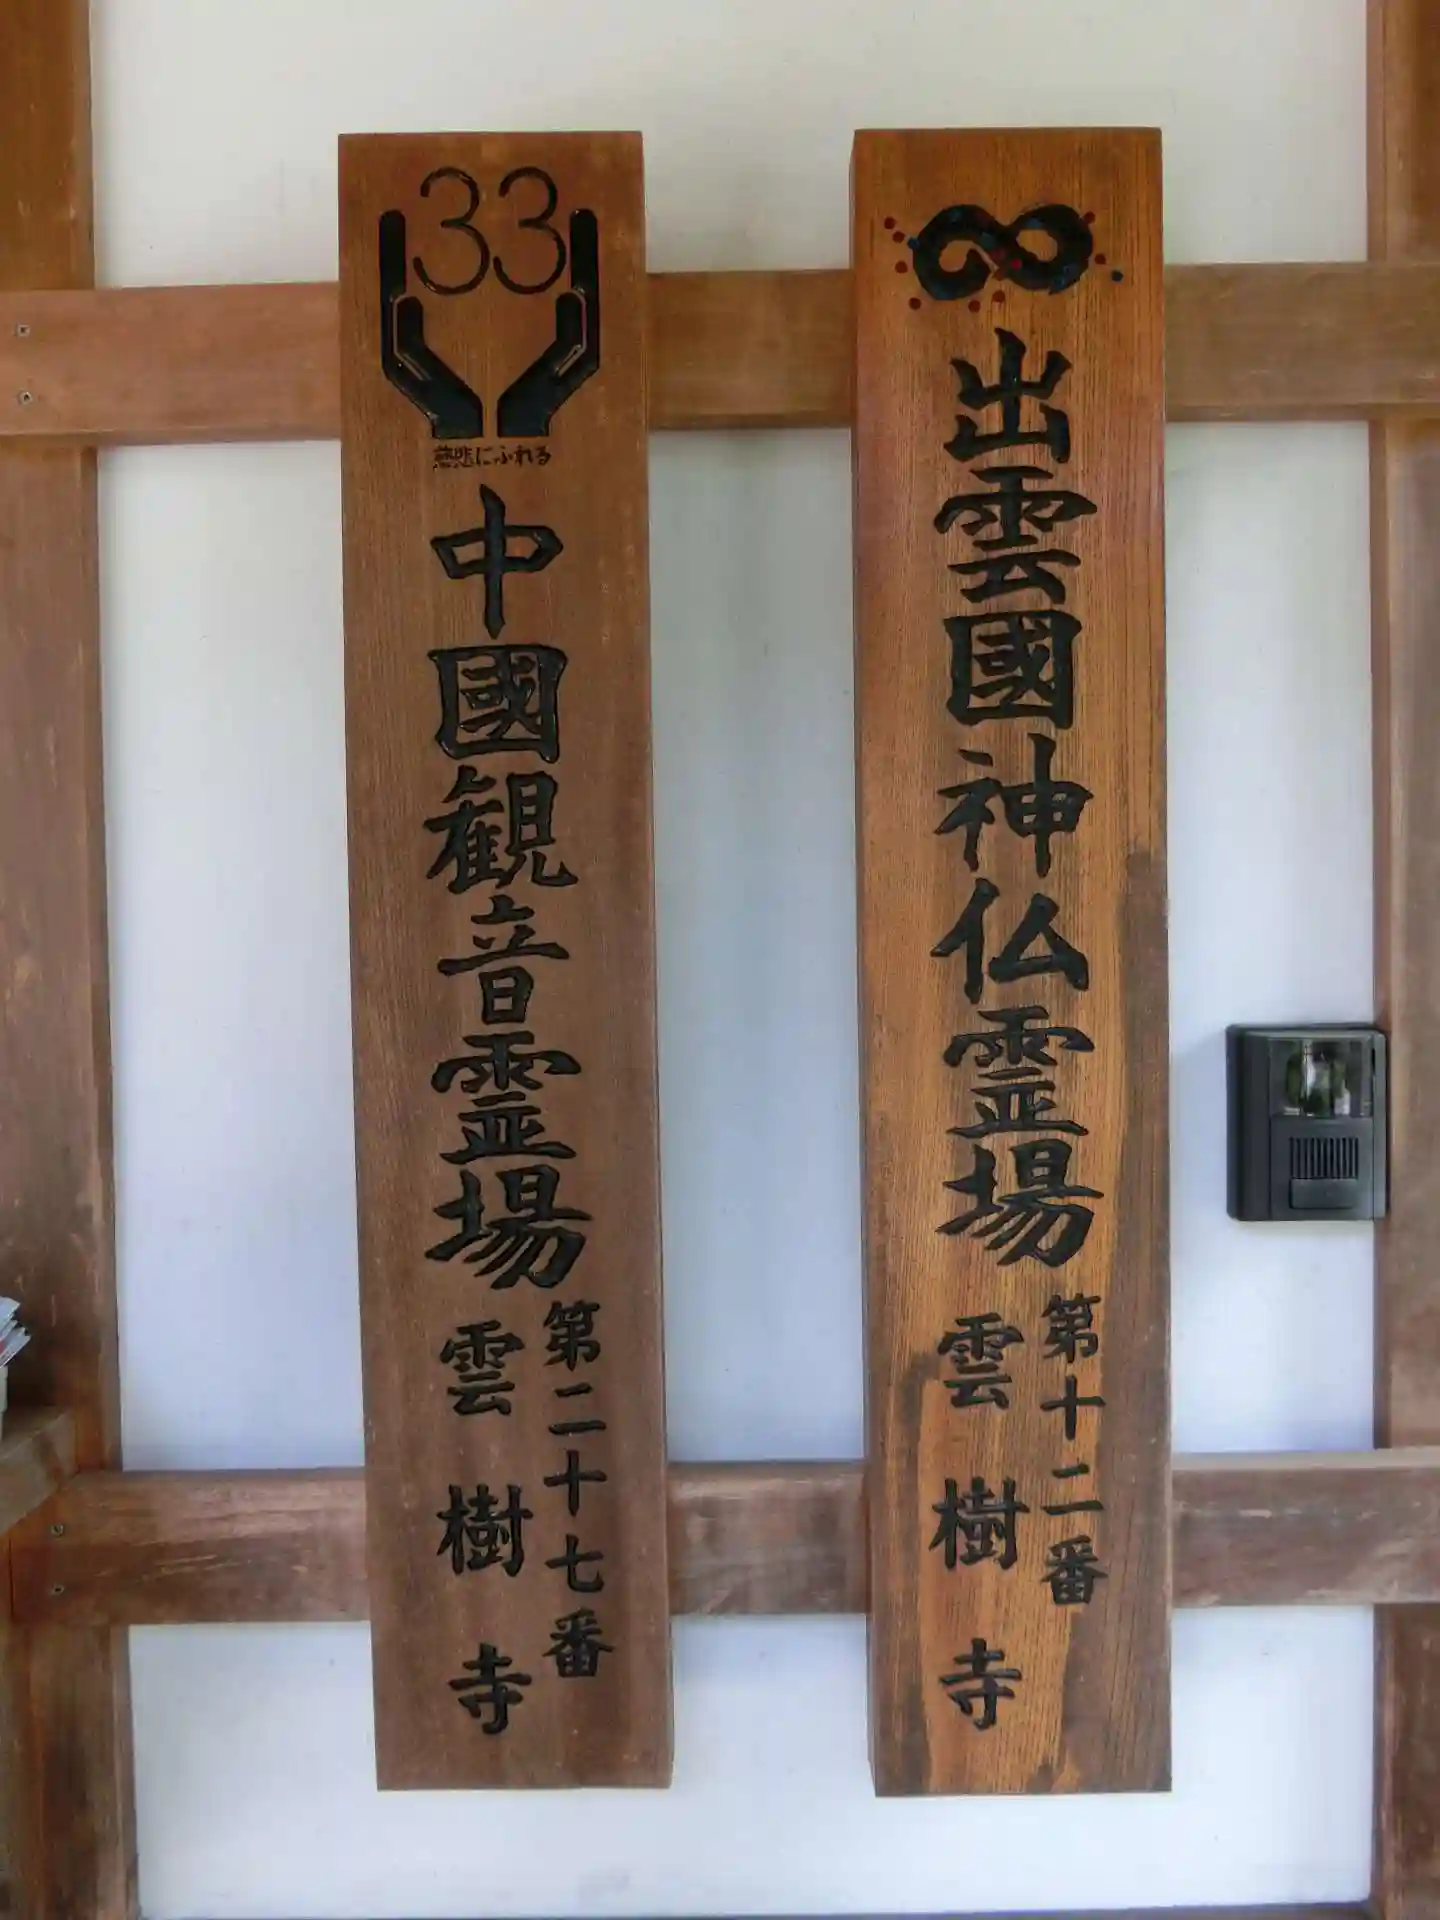 出雲國神仏霊場
第十二番
雲樹寺
33
慈悲にふれる
中國観音霊場
第二十七番
雲樹寺